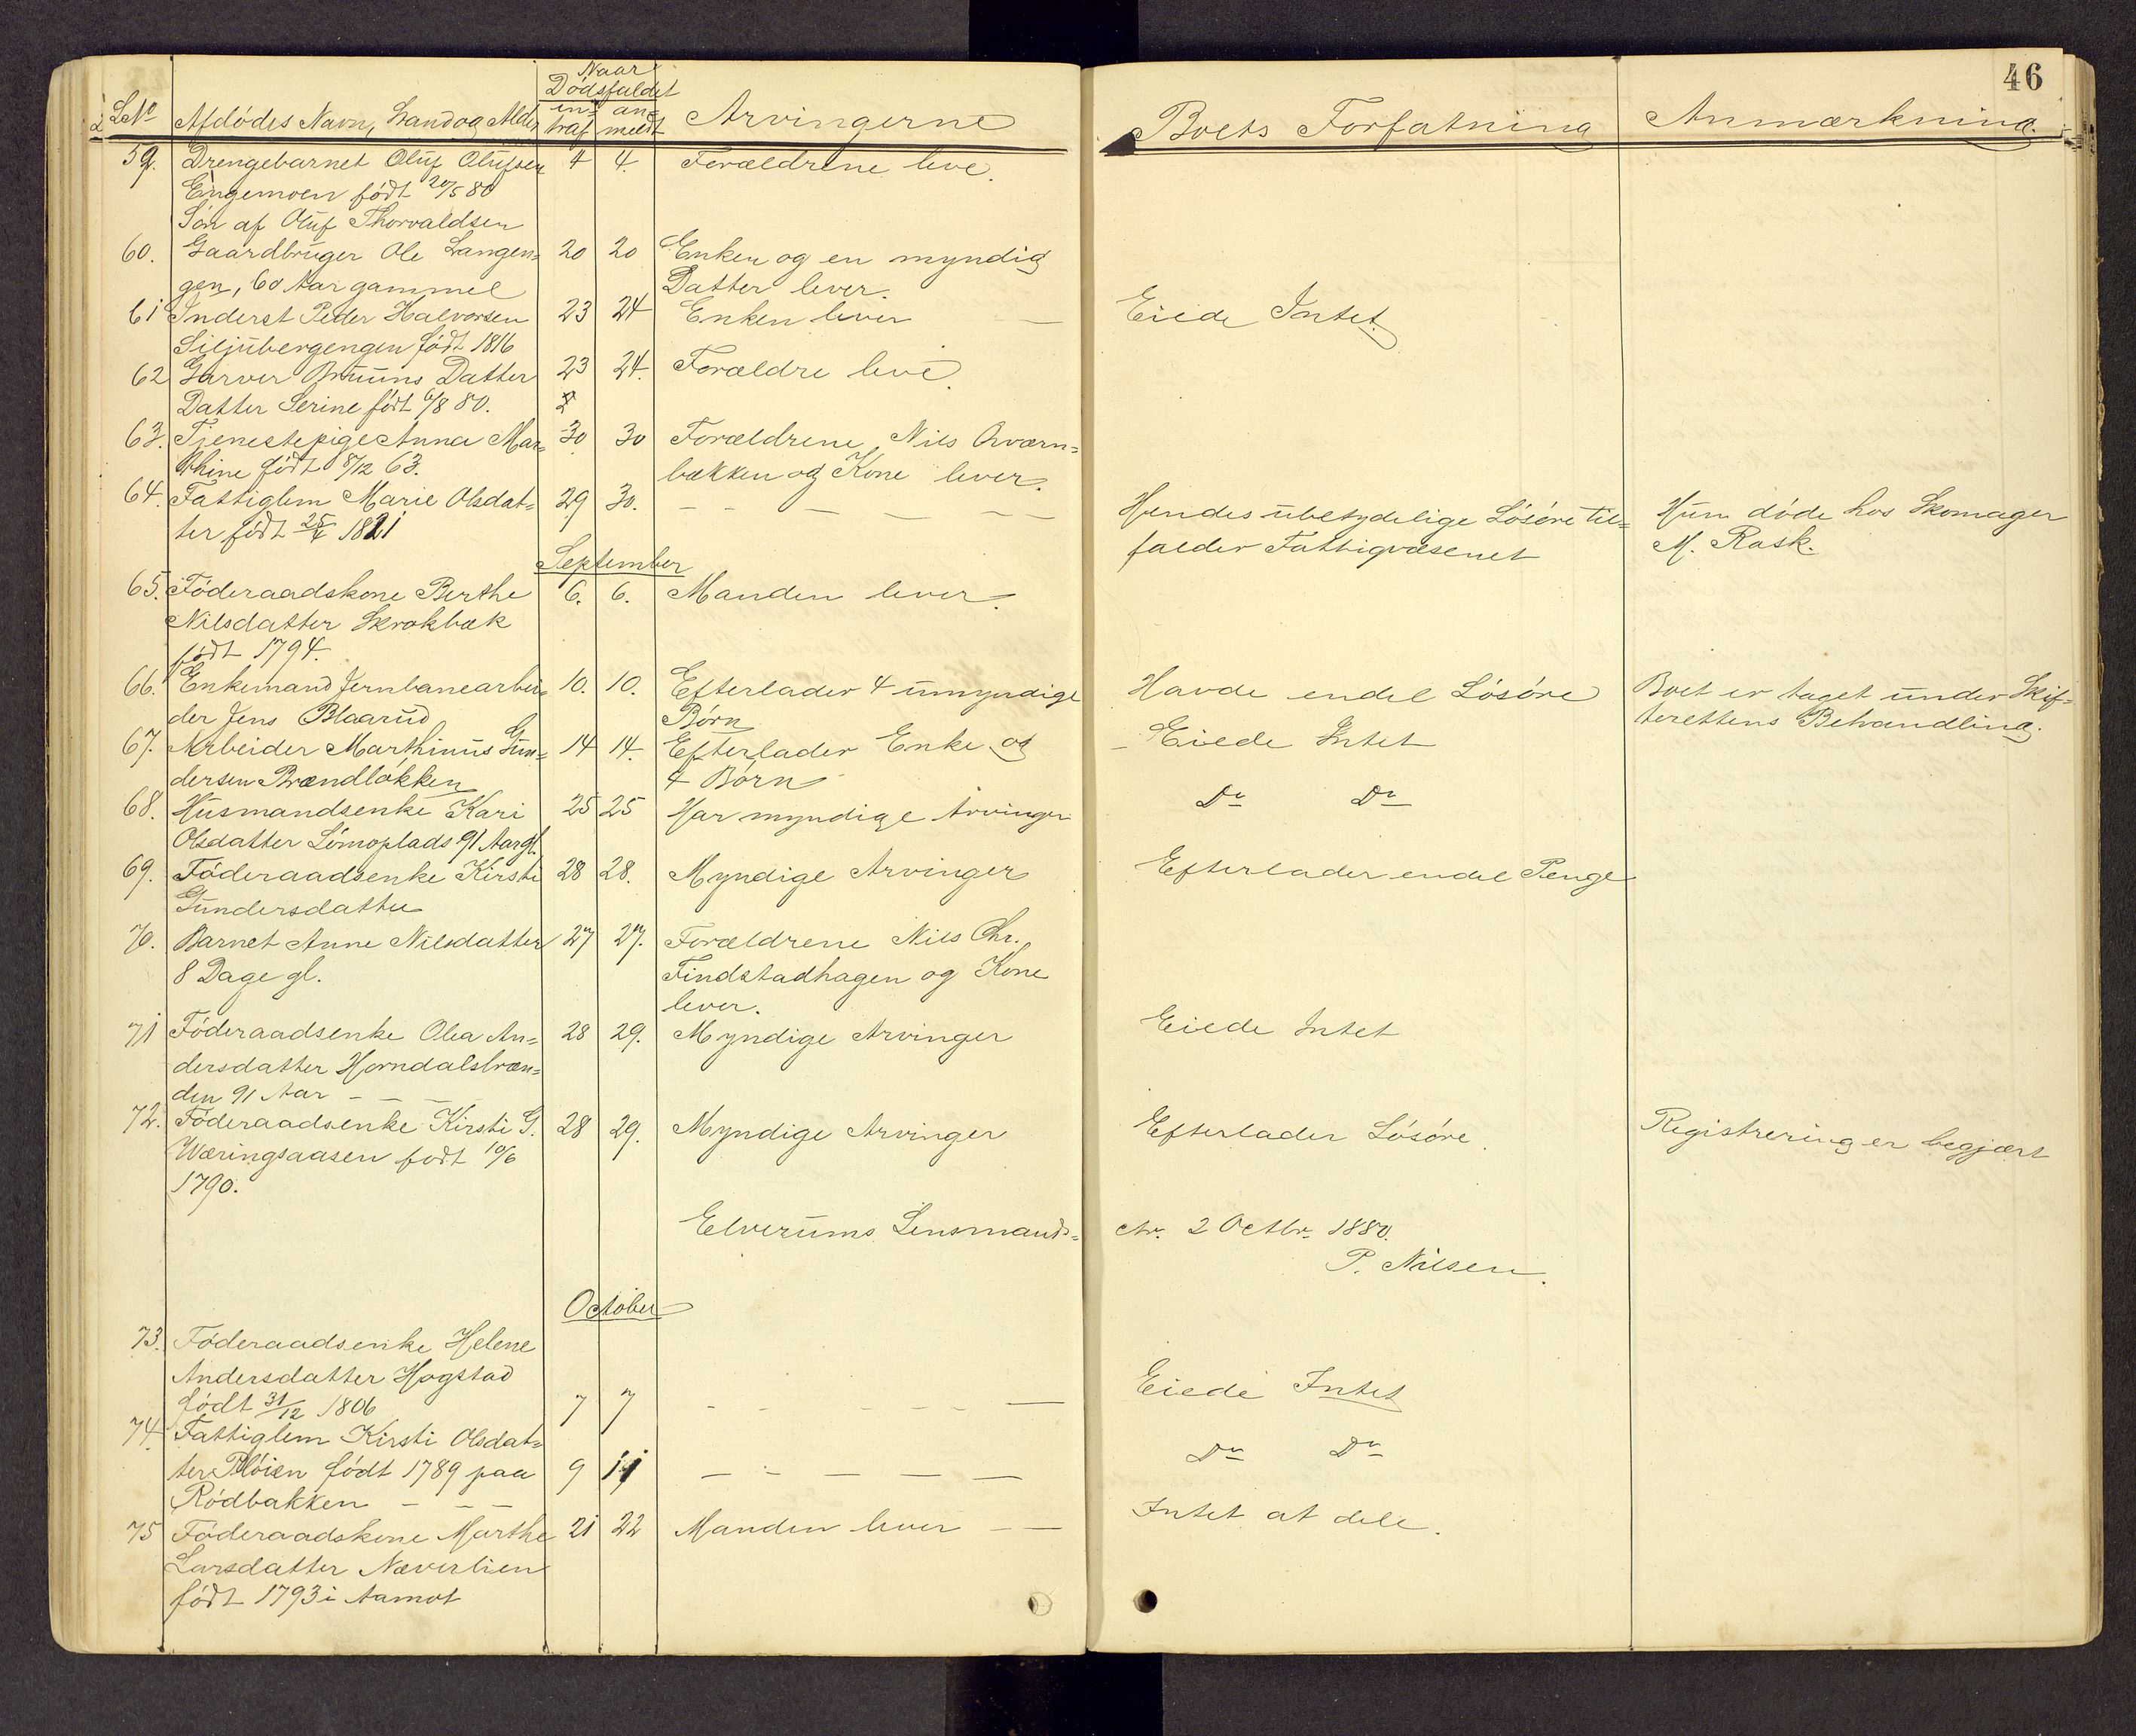 46
LNo Afdødes Navn, Stand og Alder Naar Dødsfaldet indtraf anmeldt Arvingerne Boets Forfatning Anmærkning.
59. Drengebarnet Oluf Olufsen 4 4. Forældrene leve.
Engemoen født 20/5 80
Søn af Oluf Thorvaldsen
60. Gaardbruger Ole Langen= 20 20 Enken og en myndig
gen, 60 Aar gammel Datter lever.
61 Inderst Peder Halvorsen 23 24 Enken lever — Eiede Intet
Siljubergengen født 1816
62 Garver Bruuns Datter 23 24. Forældre leve.
Datter Serine født 6/8 80.
63. Tjenestepige Anna Mar= 30 30 Forældrene, Nils Qværn=
thine født 8/12 63. bækken og Kone lever.
64. Fattiglem Marie Olsdat= 29 30. — — — — — Hendes ubetydelige Løsøre til= Hun døde hos Skomager
ter født 25/4 1821 falder Fattigvæsenet M. Rask.
September
65. Føderaadskone Berthe 6. 6. Manden lever.
Nilsdatter Skrokbæk
født 1794.
66. Enkemand Jernbanearbei= 10. 10. Efterlader 4 umyndige Havde endel Løsøre Boet er taget under Skif=
der Jens Blaarud Børn terettens Behandling.
67. Arbeider Marthinus Gun= 14 14. Efterlader Enke og — Eiede Intet
dersen Brændløkken 4 Børn
68. Husmandsenke Kari 25 25 Har myndige Arvinger Do Do
Olsdatter Lømoplads 91 Aar gl.
69. Føderaadsenke Kirsti 28 28. Myndige Arvinger Efterlader endel Penge
Gundersdatter
70. Barnet Anne Nilsdatter 27 27. Forældrene Nils Chr.
8 Dage gl. Findstadhagen og Kone
lever.
71 Føderaadsenke Olea An= 28 29. Myndige Arvinger Eiede Intet
dersdatter Horndalsbræn=
den 91 Aar — — —
72. Føderaadsenke Kirsti G. 28 29. Myndige Arvinger Efterlader Løsøre. Registrering er begjært
Wæringsaasen født 10/6
1790.
Elverums Lensmands= ctr. 2 Octbr. 1880.
P. Nilsen.
October
73. Føderaadsenke Helene
Andersdatter Hogstad
født 31/12 1806 7 7 - - - - - — Eiede Intet
74. Fattiglem Kirsti Olsdat= Do Do
ter Pløien født 1789 paa 9 11 — - — — —
Rødbakken — — —
75 Føderaadskone Marthe 21 22 Manden lever — — Intet at dele.
Larsdatter Næverlien
født 1793 i Aamot